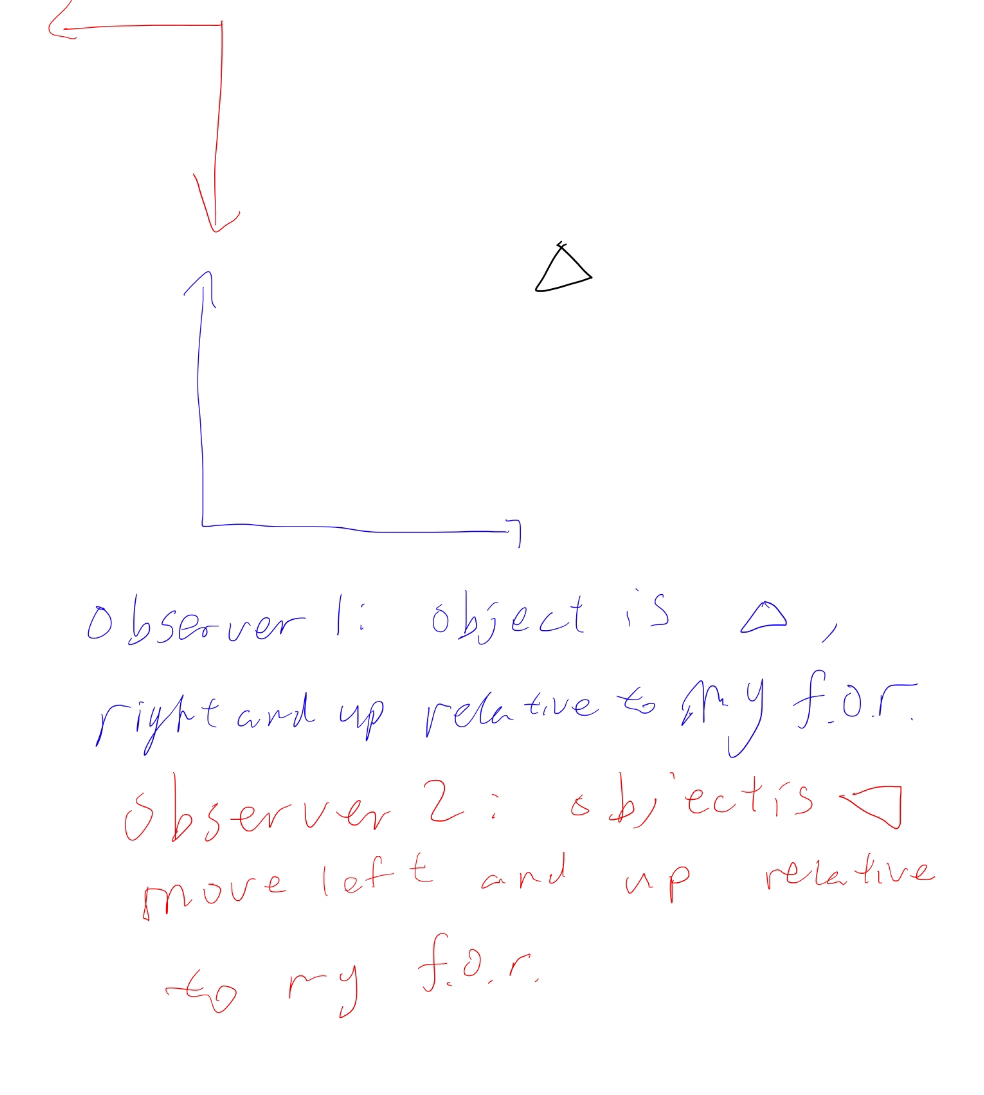 observer 1: object is △,
right and up relative to my f.o.r.
observer 2: object is ◁
move left and up relative
to my f.o.r.